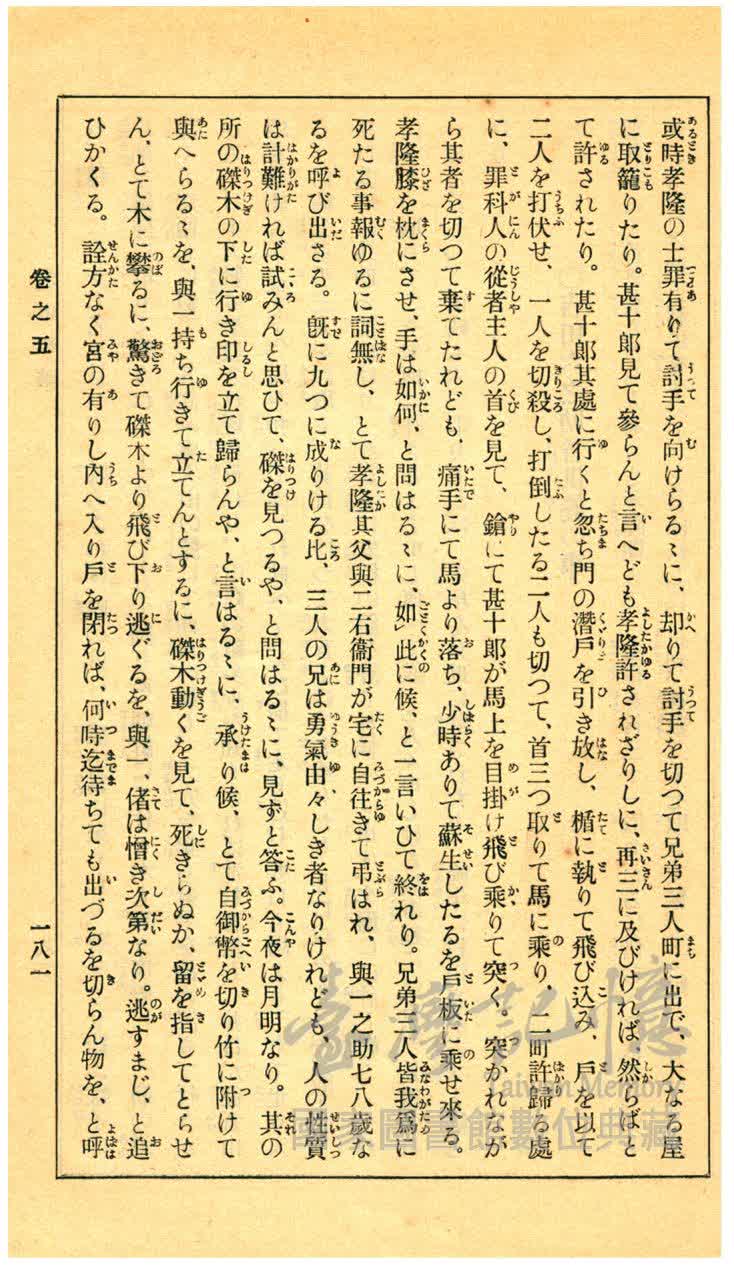 或時孝隆の士罪有りて討手を向けらるゝに、却りて討手を切つて兄弟三人町に出で、大なる屋
に取籠りたり。甚十郎見て參らんと言へども孝隆許されざりしに、再三に及びければ、然らばと
て許されたり。甚十郎其處に行くと忽ち門の潛戸を引き放し、楯に執りて飛び込み、戸を以て
二人を打伏せ、一人を切殺し、打倒したる二人も切つて、首三つ取りて馬に乘り、二町許歸る處
に、罪科人の從者主人の首を見て、鎗にて甚十郎が馬上を目掛け飛び乘りて突く。突かれなが
ら其者を切つて棄てたれども、痛手にて馬より落ち、少時ありて蘇生したるを戸板に乘せ來る。
孝隆膝を枕にさせ、手は如何、と問はるゝに、如」此に候、と一言いひて終れり。兄弟三人皆我爲に
死たる事報ゆるに詞無し、とて孝隆其父與二右衞門が宅に自往きて弔はれ、與一之助七八歳な
るを呼び出さる。既に九つに成りける比、三人の兄は勇氣由々しき者なりけれども、人の性質
は計難ければ試みんと思ひて、磔を見つるや、と問はるゝに、見ずと答ふ。今夜は月明なり。其の
所の磔木の下に行き印を立て歸らんや、と言はるゝに、承り候、とて自御幣を切り竹に附けて
與へらるゝを、與一持ち行きて立てんとするに、磔木動くを見て、死きらぬか、留を指してとらせ
ん、とて木に攀るに、驚きて磔木より飛び下り逃ぐるを、與一、偖は憎き次第なり。逃すまじ、と追
ひかくる。詮方なく宮の有りし内へ入り戸を閉れば、何時迄待ちても出づるを切らん物を、と呼
卷之五
一八一
臺灣記憶
Taiwan Memory
國家圖書館數位典藏